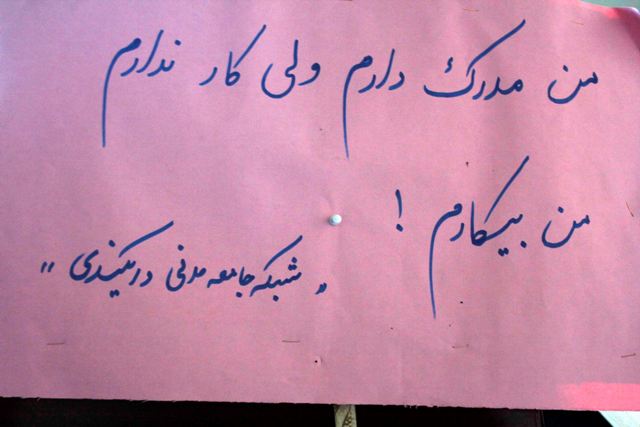 من مدرک دارم ولی کار ندارم
من بیکارم !
"شبکه جامعه مدنی"